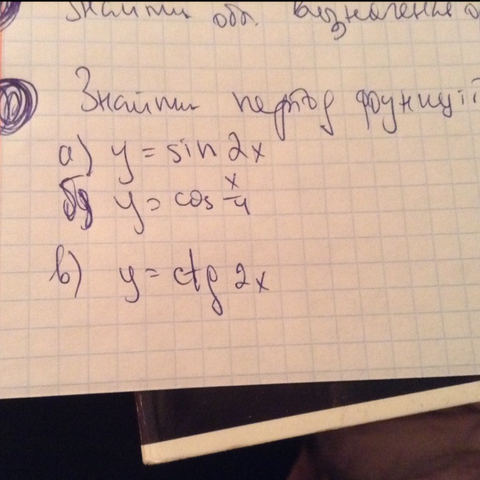 Знайти обл. визначення
Знайти період функції
а) y = sin 2x
б) y = cos x/4
в) y = ctg 2x